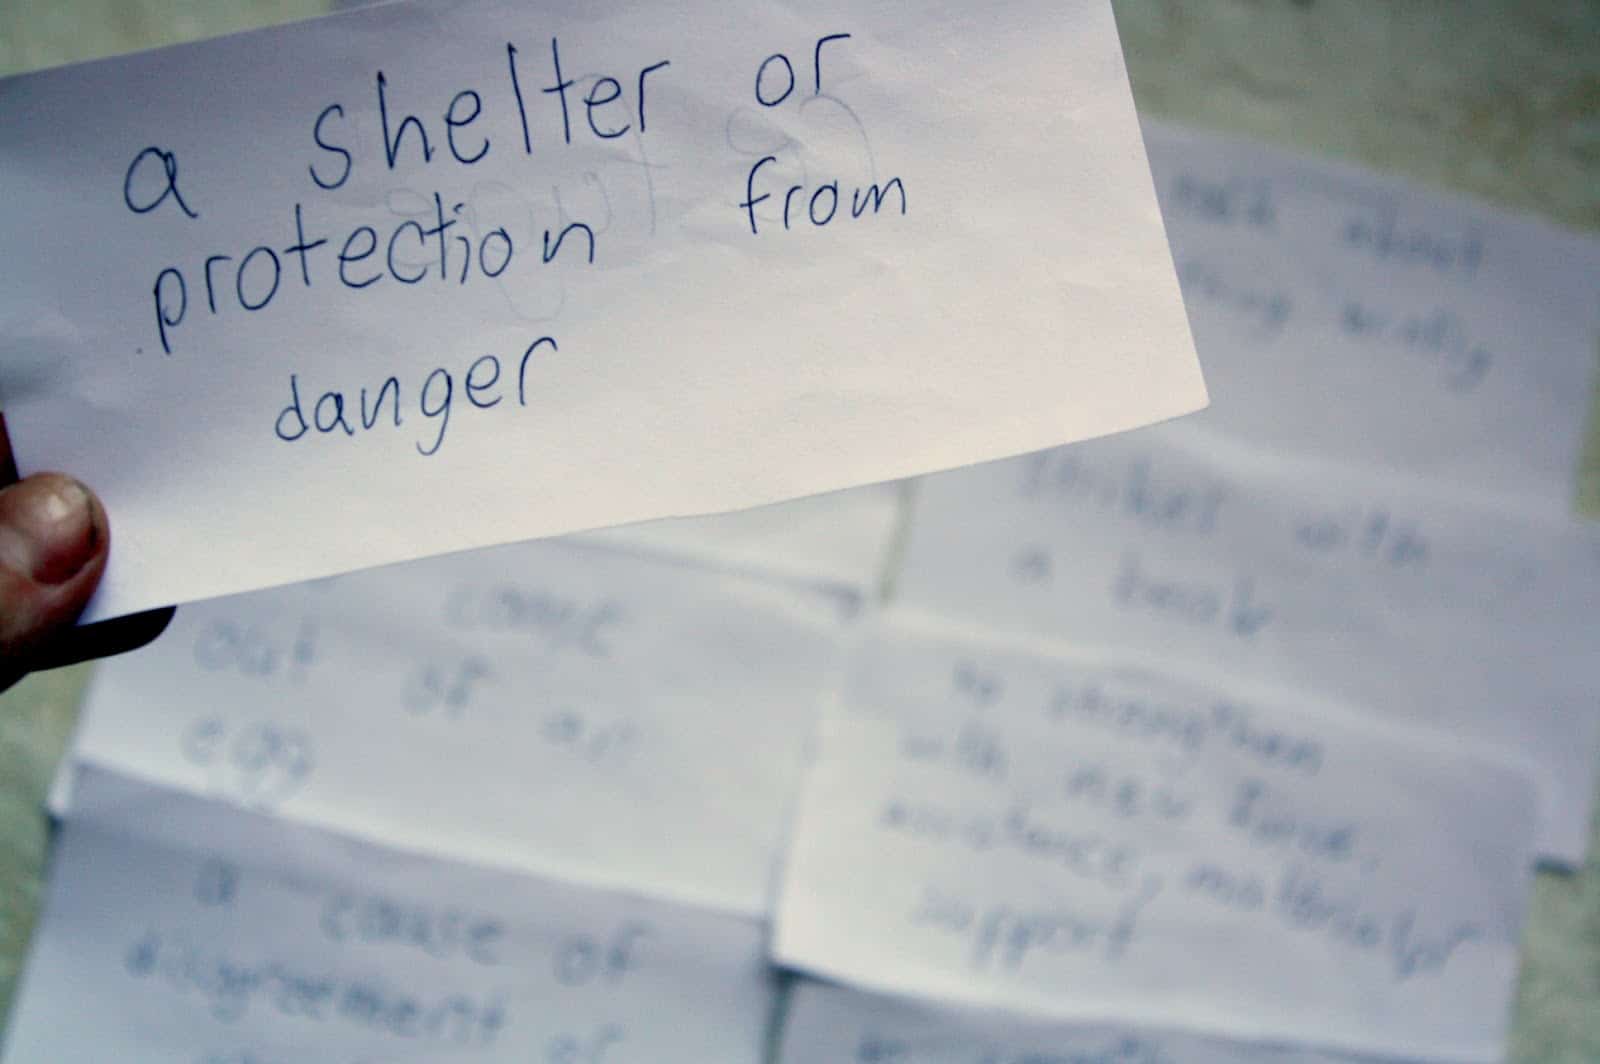 a shelter or
protection from
danger
about
with
a beak
come
out of an
egg
to strengthen
with new force,
assistance, material or
support
a cause of
disagreement or